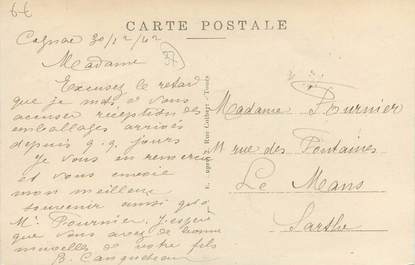 6€
CARTE POSTALE
Cognac 30/12/42
37
Madame
Excusez le retard
que je mets à vous
accuser réception des
emballages arrivés
depuis q.q. jours
Je vous en remercie
et vous envoie
mon meilleur
souvenir ainsi qu'à
Mr Fournier. J'espère
que vous avez de bonnes
nouvelles de votre fils
Rue Colbert - Tours
Madame Fournier
rue des Fontaines
Le Mans
Sarthe